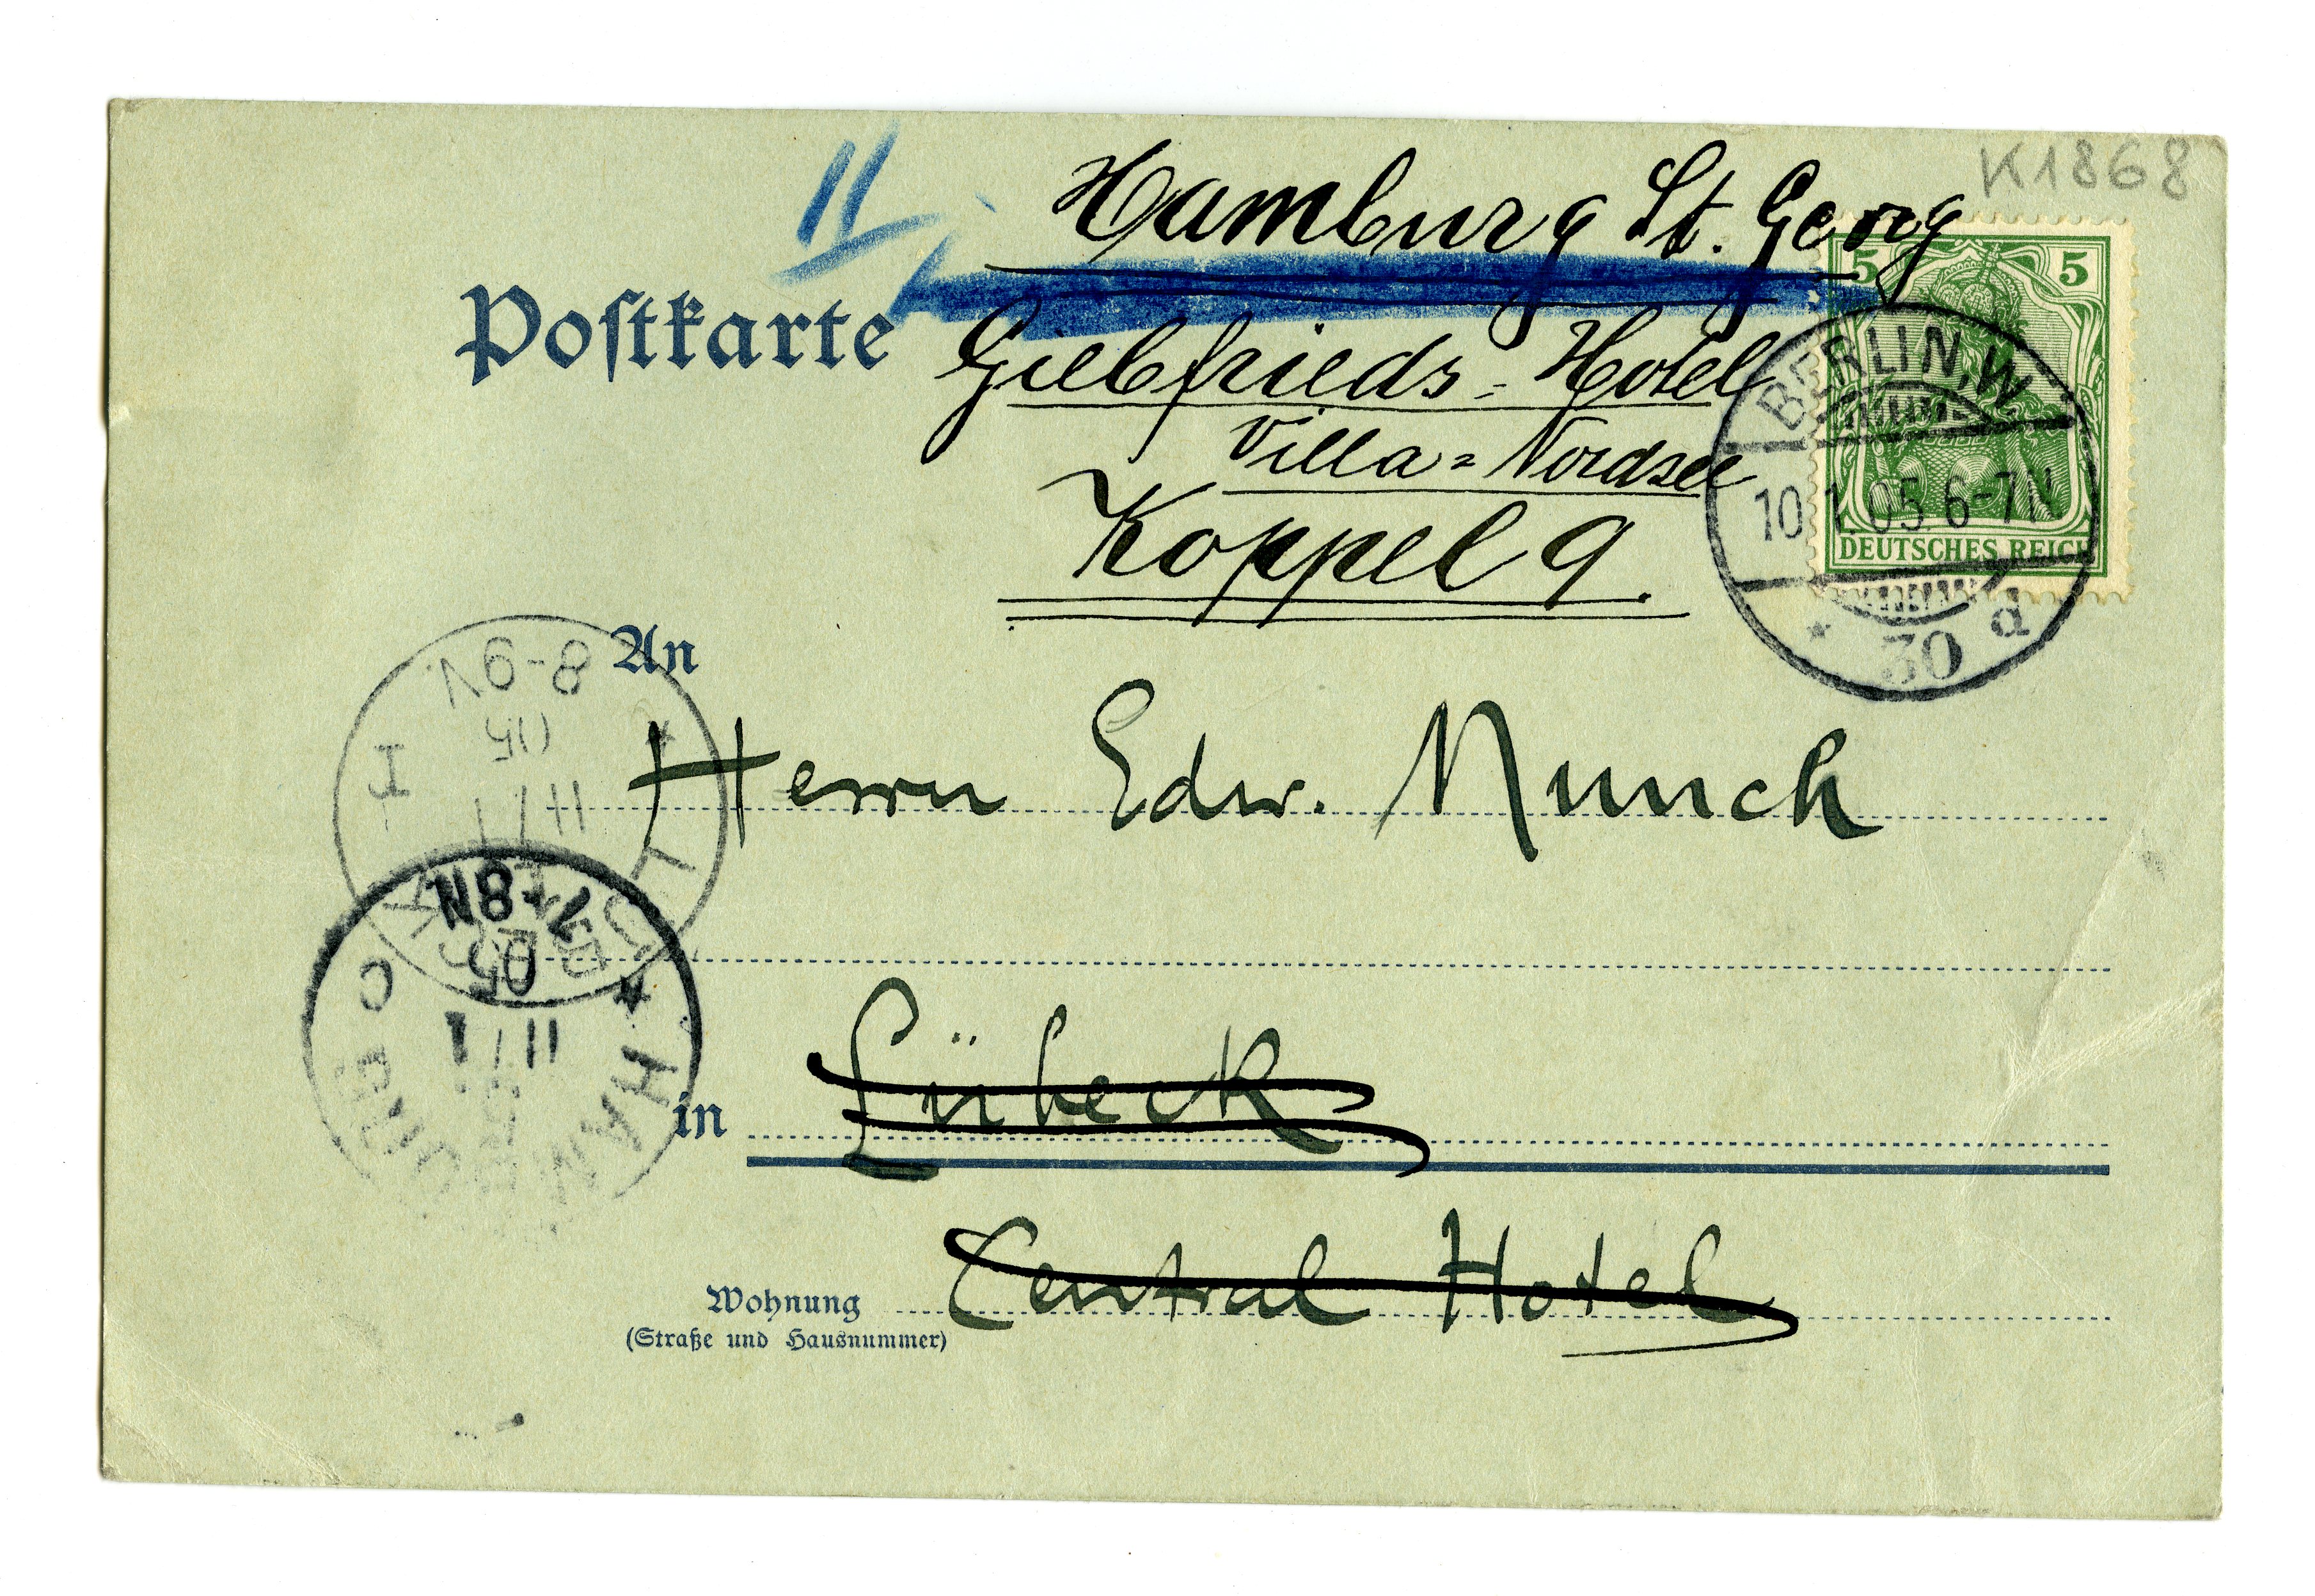 K1868
11
Hamburg St. Georg
Postkarte
Giebfrieds-Hotel
Villa=Nordsee
Koppel 9.
5 5
DEUTSCHES REICH
BERLIN, W
10.1.05 6-7N
* 30 a
An
Herrn Edw. Munch
* LÜBECK 1
11/1
05
8-9V.
* HAMBURG C
11/1
05
7-8N
in Lübeck
Wohnung Central Hotel
(Straße und Hausnummer)